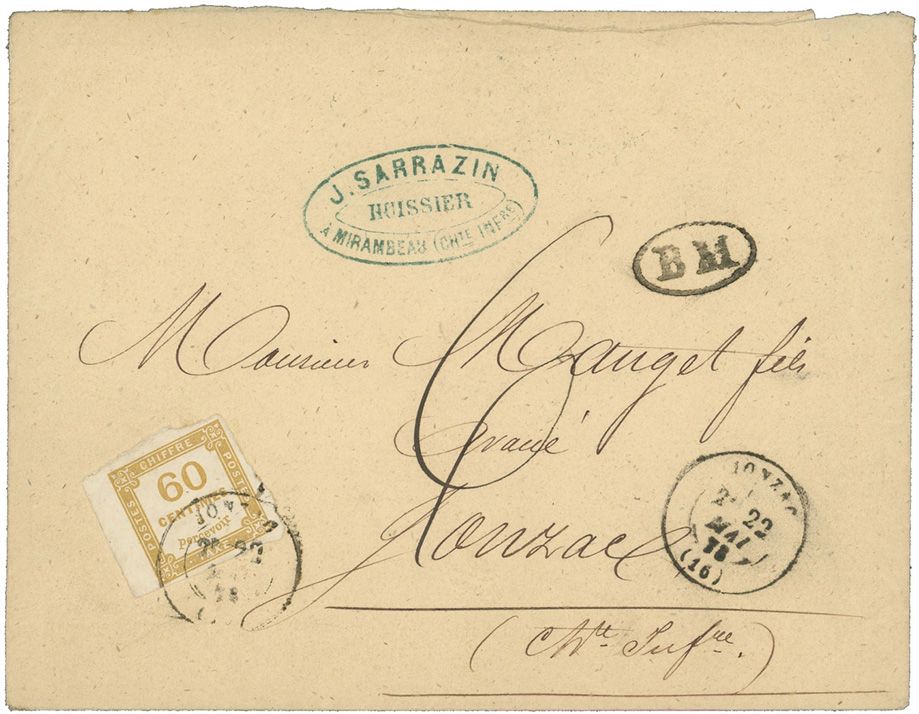 J. SARRAZIN
HUISSIER
A MIRAMBEAU (CHTE INFRE)
B M
Monsieur Mauget fils
Avoué
6
Jonzac
(Chte Infre.)
CHIFFRE
POSTES
POSTES
60
CENTIMES
percevoir
TAXE
JONZAC
2E 22
MAI
78
JONZAC
2E 22
MAI
78
(16)